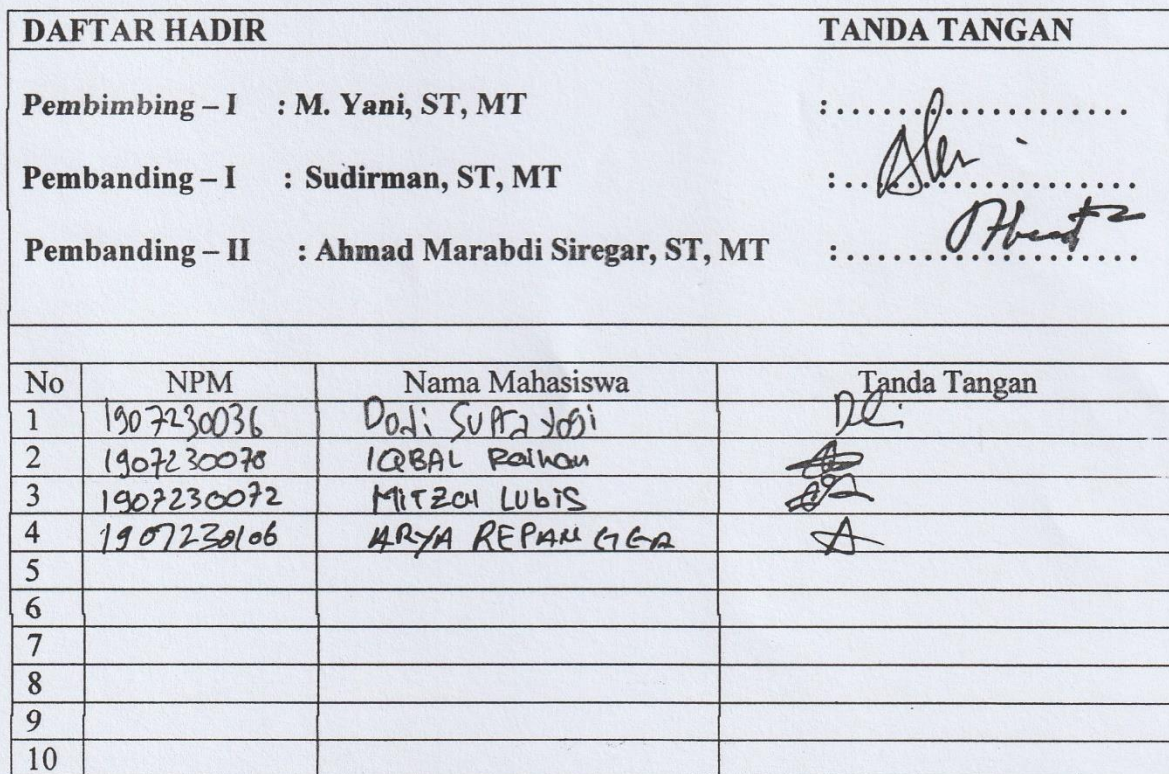 DAFTAR HADIR TANDA TANGAN
Pembimbing – I : M. Yani, ST, MT :......................
Pembanding – I : Sudirman, ST, MT :......................
Pembanding – II : Ahmad Marabdi Siregar, ST, MT :......................
No NPM Nama Mahasiswa Tanda Tangan
1 1907230036 Dodi Suprayogi
2 1907230078 IQBAL Raihan
3 1907230072 MITZCH LUBIS
4 1907230106 ARYA REPANGGA
5
6
7
8
9
10